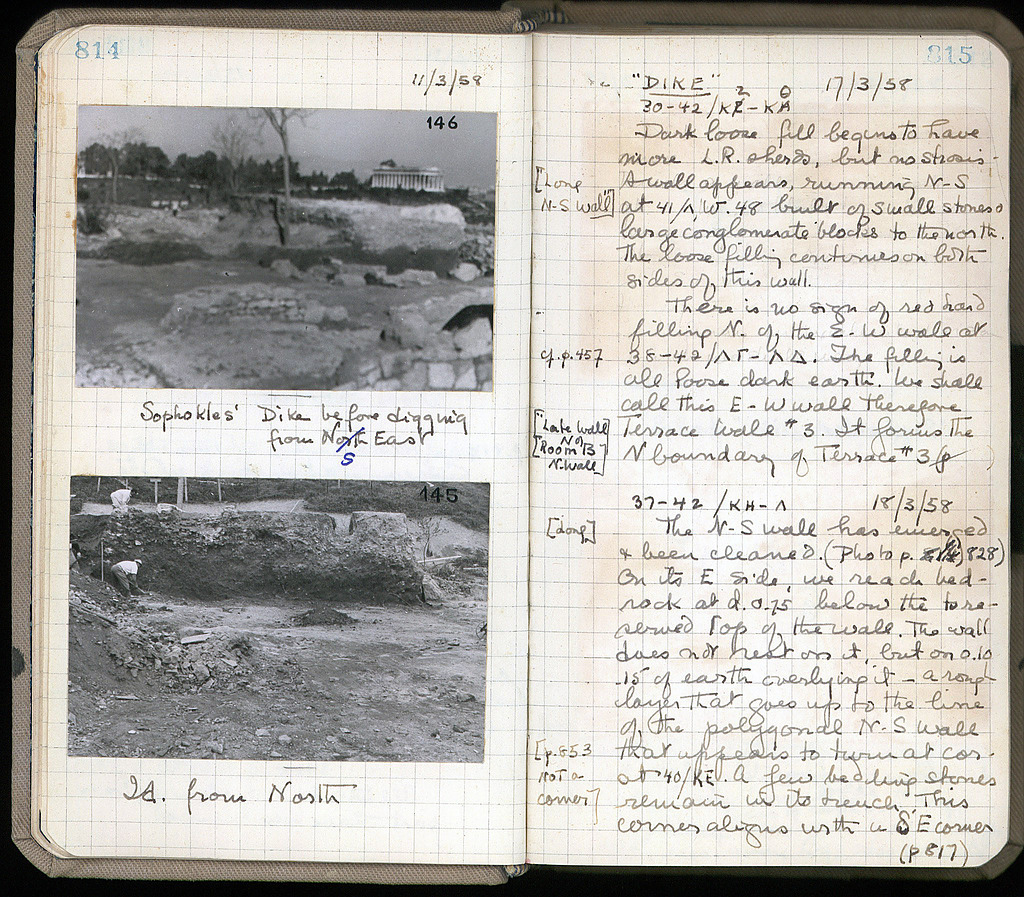 814
11/3/58
146
Sophokles' Dike before digging
from North East
S
145
Id. from North
815
"DIKE" 17/3/58
30-42/ΚΖ-ΚΘ
Dark loose fill begins to have
more L.R. sherds, but no strosis.
[Long
N-S wall]
A wall appears, running N-S
at 41/Λ W. 48 built of small stones &
large conglomerate blocks to the north.
The loose filling continues on both
sides of this wall.
There is no sign of red hard
filling N. of the E-W wall at
cf. p. 457
38-42/ΛΓ-ΛΔ. The filling is
all loose dark earth. We shall
call this E-W wall therefore
["Late wall
N of
Room 13
N. Wall]
Terrace Wall #3. It forms the
N boundary of Terrace #3
37-42/ΚΗ-Λ 18/3/58
[long]
The N-S wall has emerged
& been cleaned. (Photo p. 828)
On its E side, we reach bed-
rock at d. 0.75 below the pre-
served top of the wall. The wall
does not rest on it, but on 0.10
.15 of earth overlying it - a
layer that goes up to the line
of the polygonal N-S wall
[p. 853
not a
corner]
that appears to turn at cor.
at 40/ΚΕ. A few bedding stones
remain in its trench. This
corner aligns with a SE corner
(p 817)